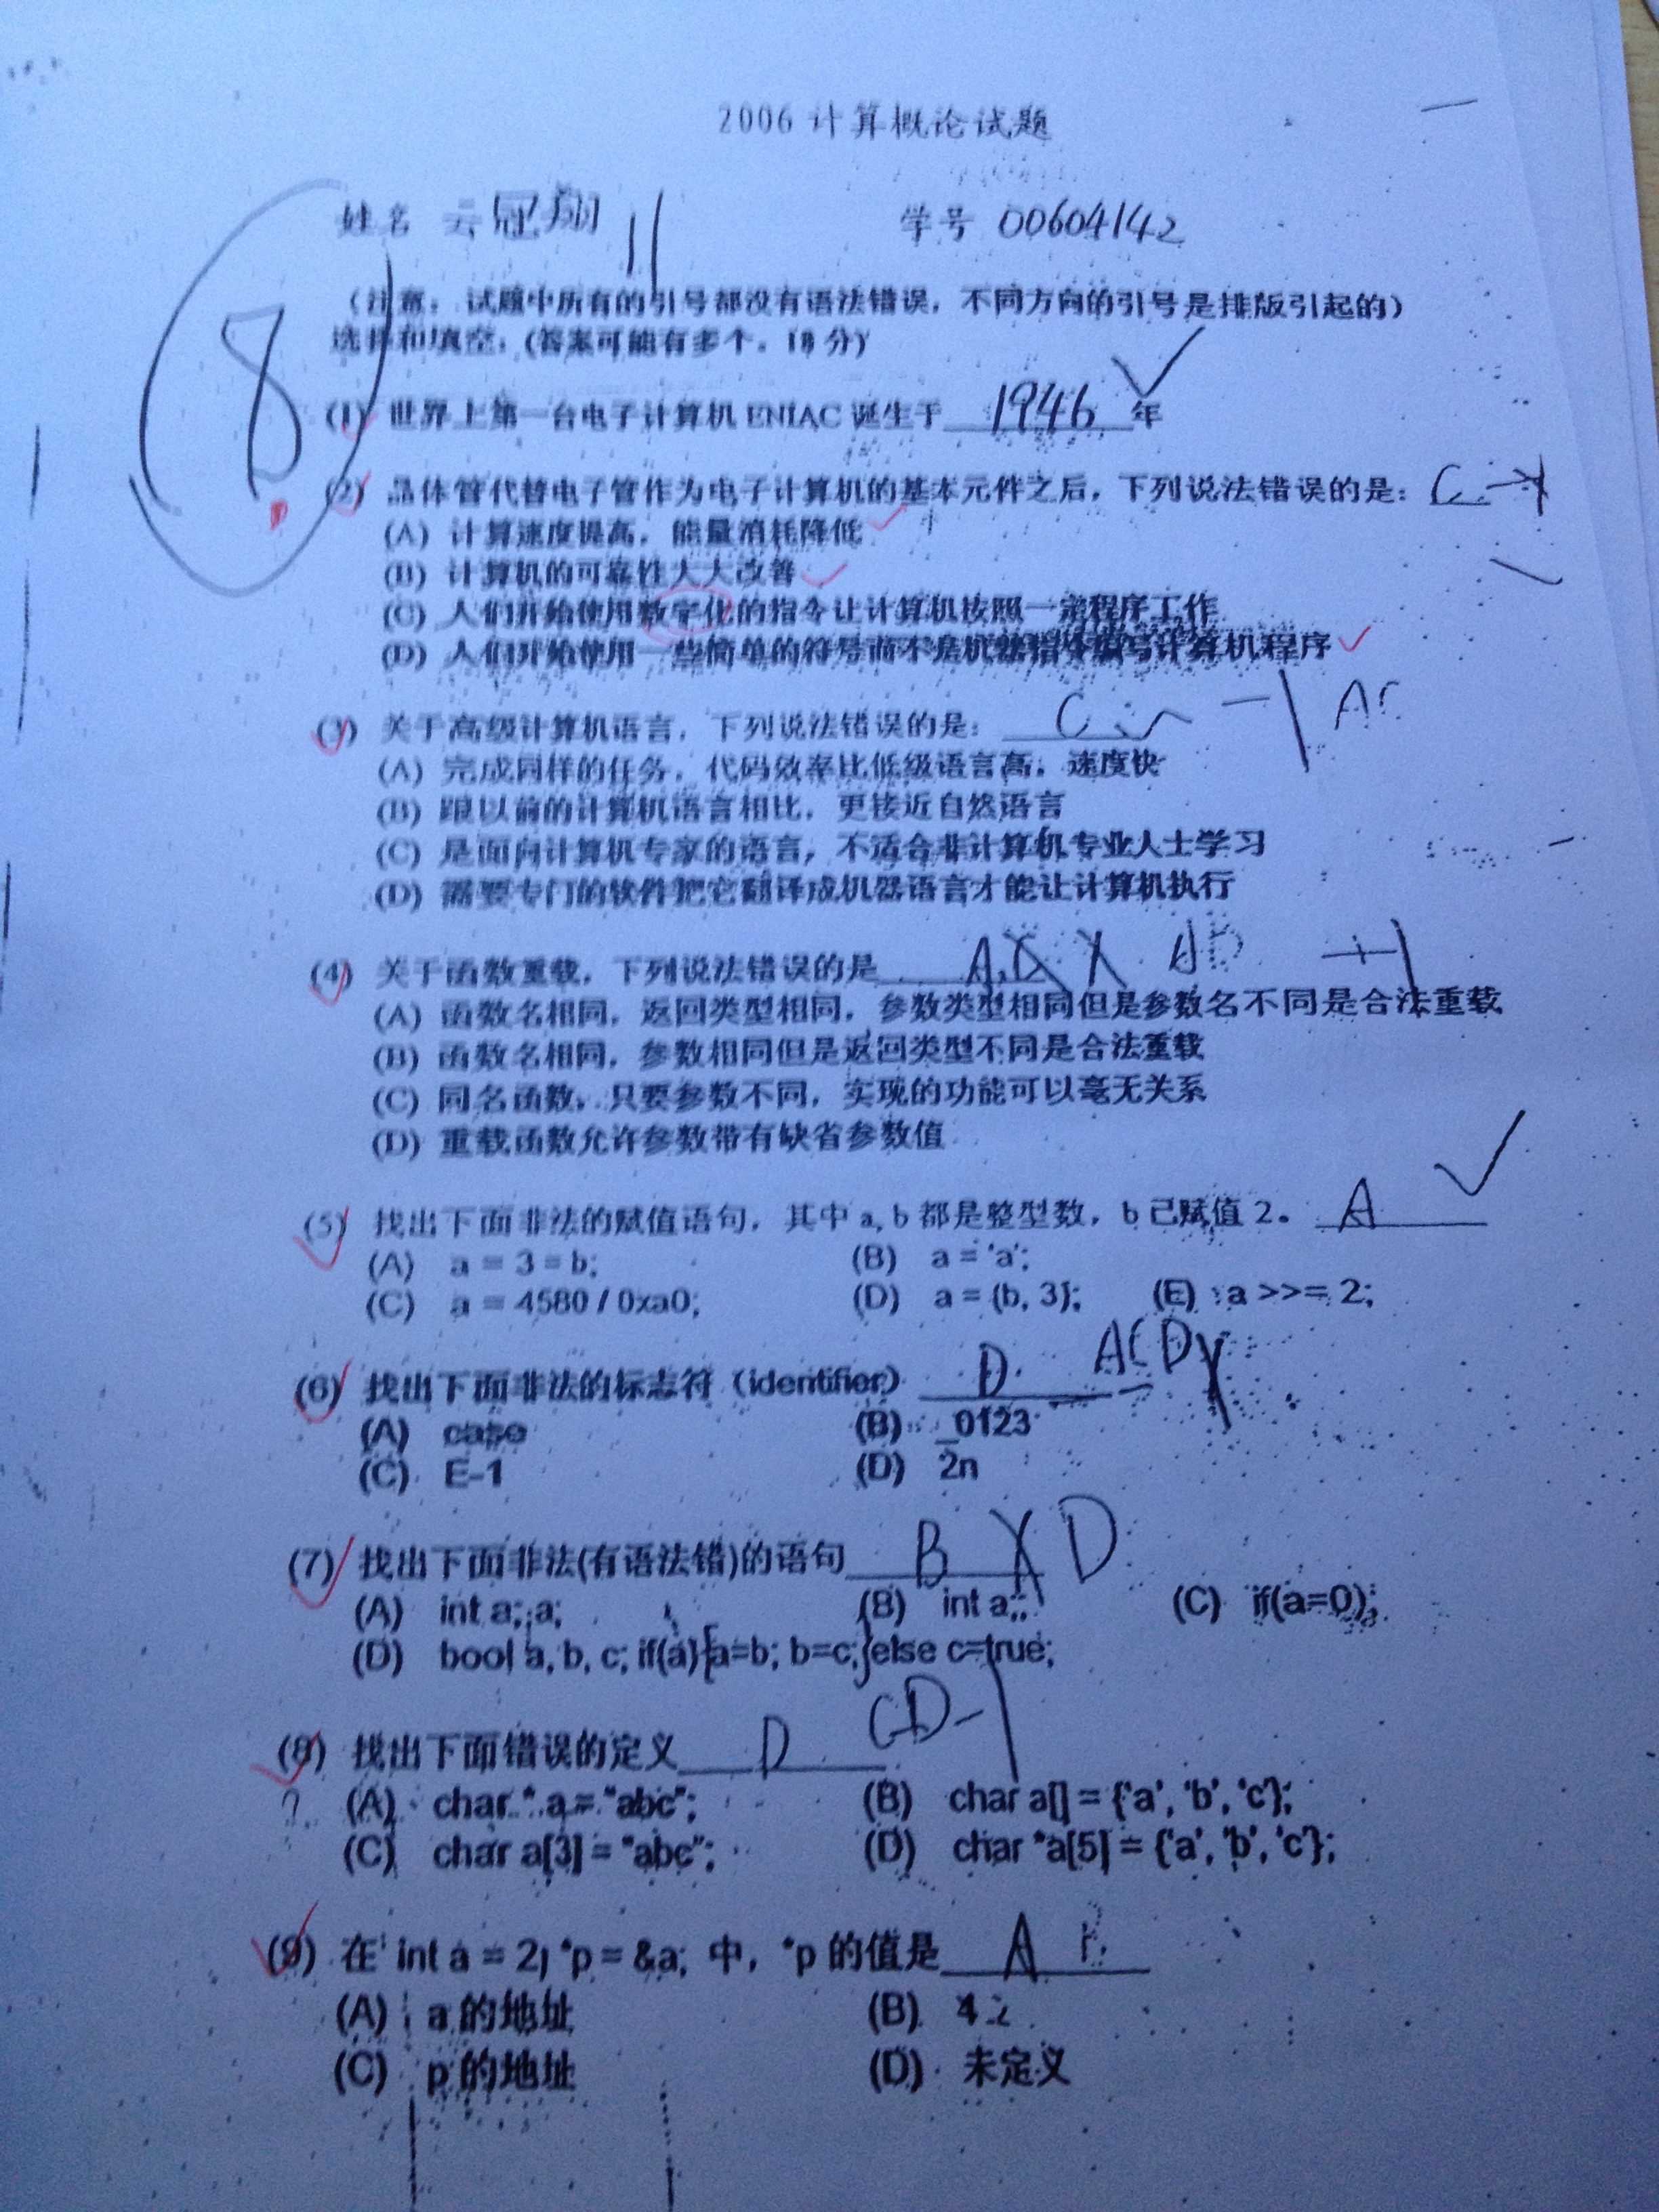 2006 计算概论试题
姓名 云冠翔 11 学号 00604142
(注意: 试题中所有的引号都没有语法错误, 不同方向的引号是排版引起的)
8
选择和填空: (答案可能有多个. 18 分)
(1) 世界上第一台电子计算机 ENIAC 诞生于 1946 年
(2) 晶体管代替电子管作为电子计算机的基本元件之后, 下列说法错误的是: C
(A) 计算速度提高, 能量消耗降低
(B) 计算机的可靠性大大改善
(C) 人们开始使用数字化的指令让计算机按照一定程序工作
(D) 人们开始使用一些简单的符号而不是机器指令编写计算机程序
(3) 关于高级计算机语言, 下列说法错误的是: C -1 AC
(A) 完成同样的任务, 代码效率比低级语言高, 速度快
(B) 跟以前的计算机语言相比, 更接近自然语言
(C) 是面向计算机专家的语言, 不适合非计算机专业人士学习
(D) 需要专门的软件把它翻译成机器语言才能让计算机执行
(4) 关于函数重载, 下列说法错误的是 A, AB -1
(A) 函数名相同, 返回类型相同, 参数类型相同但是参数名不同是合法重载
(B) 函数名相同, 参数相同但是返回类型不同是合法重载
(C) 同名函数, 只要参数不同, 实现的功能可以毫无关系
(D) 重载函数允许参数带有缺省参数值
(5) 找出下面非法的赋值语句, 其中 a, b 都是整型数, b 已赋值 2。 A
(A) a = 3 = b; (B) a = 'a';
(C) a = 4580 / 0xa0; (D) a = (b, 3); (E) a >>= 2;
(6) 找出下面非法的标志符 (identifier) D ACD
(A) case (B) _0123
(C) E-1 (D) 2n
(7) 找出下面非法(有语法错)的语句 B D
(A) int a; a; (B) int a;; (C) if(a=0);
(D) bool a, b, c; if(a){a=b; b=c;}else c=true;
(8) 找出下面错误的定义 D CD -1
? (A) char * a = "abc"; (B) char a[] = {'a', 'b', 'c'};
(C) char a[3] = "abc"; (D) char *a[5] = {'a', 'b', 'c'};
(9) 在 int a = 2, *p = &a; 中, *p 的值是 A B
(A) a 的地址 (B)
(C) p 的地址 (D) 未定义